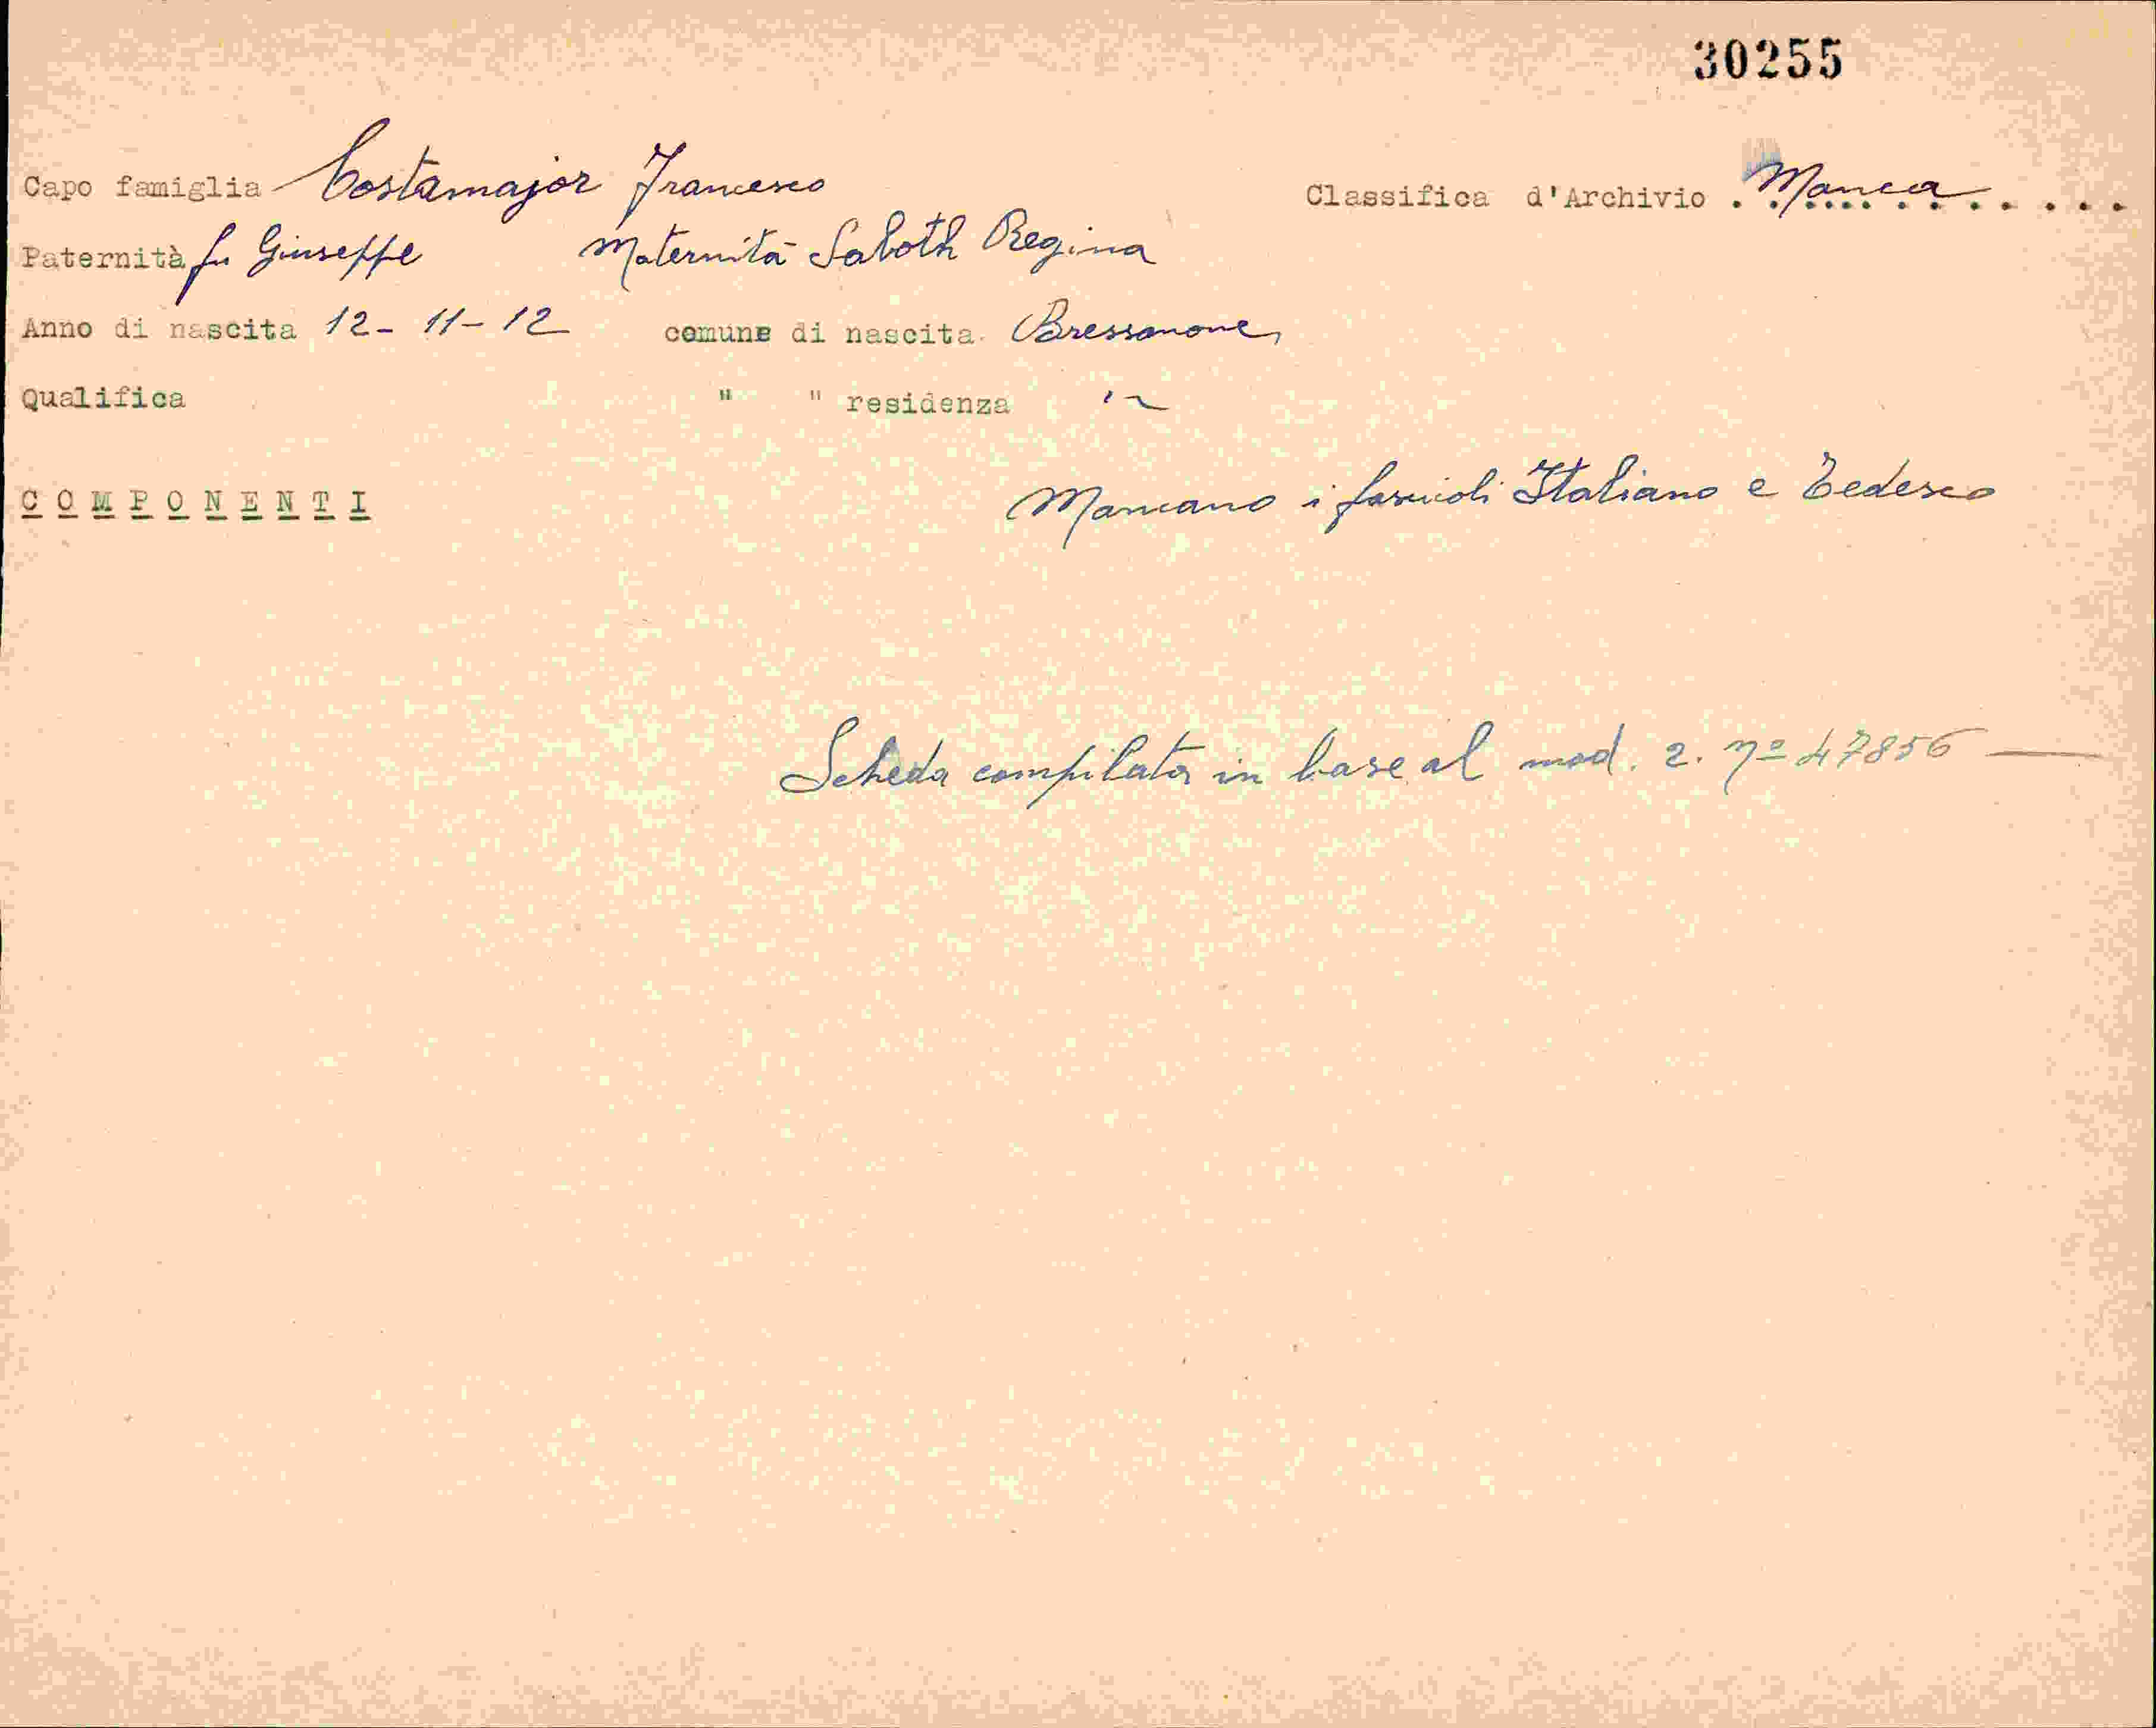 30255
Capo famiglia Costamajor Francesco Classifica d'Archivio Manca
Paternità fu Giuseppe Maternità Saboth Regina
Anno di nascita 12-11-12 comune di nascita. Bressanone
Qualifica " " residenza
COMPONENTI Mancano i fascicoli Italiano e Tedesco
Scheda compilata in base al mod. 2. nº 47856